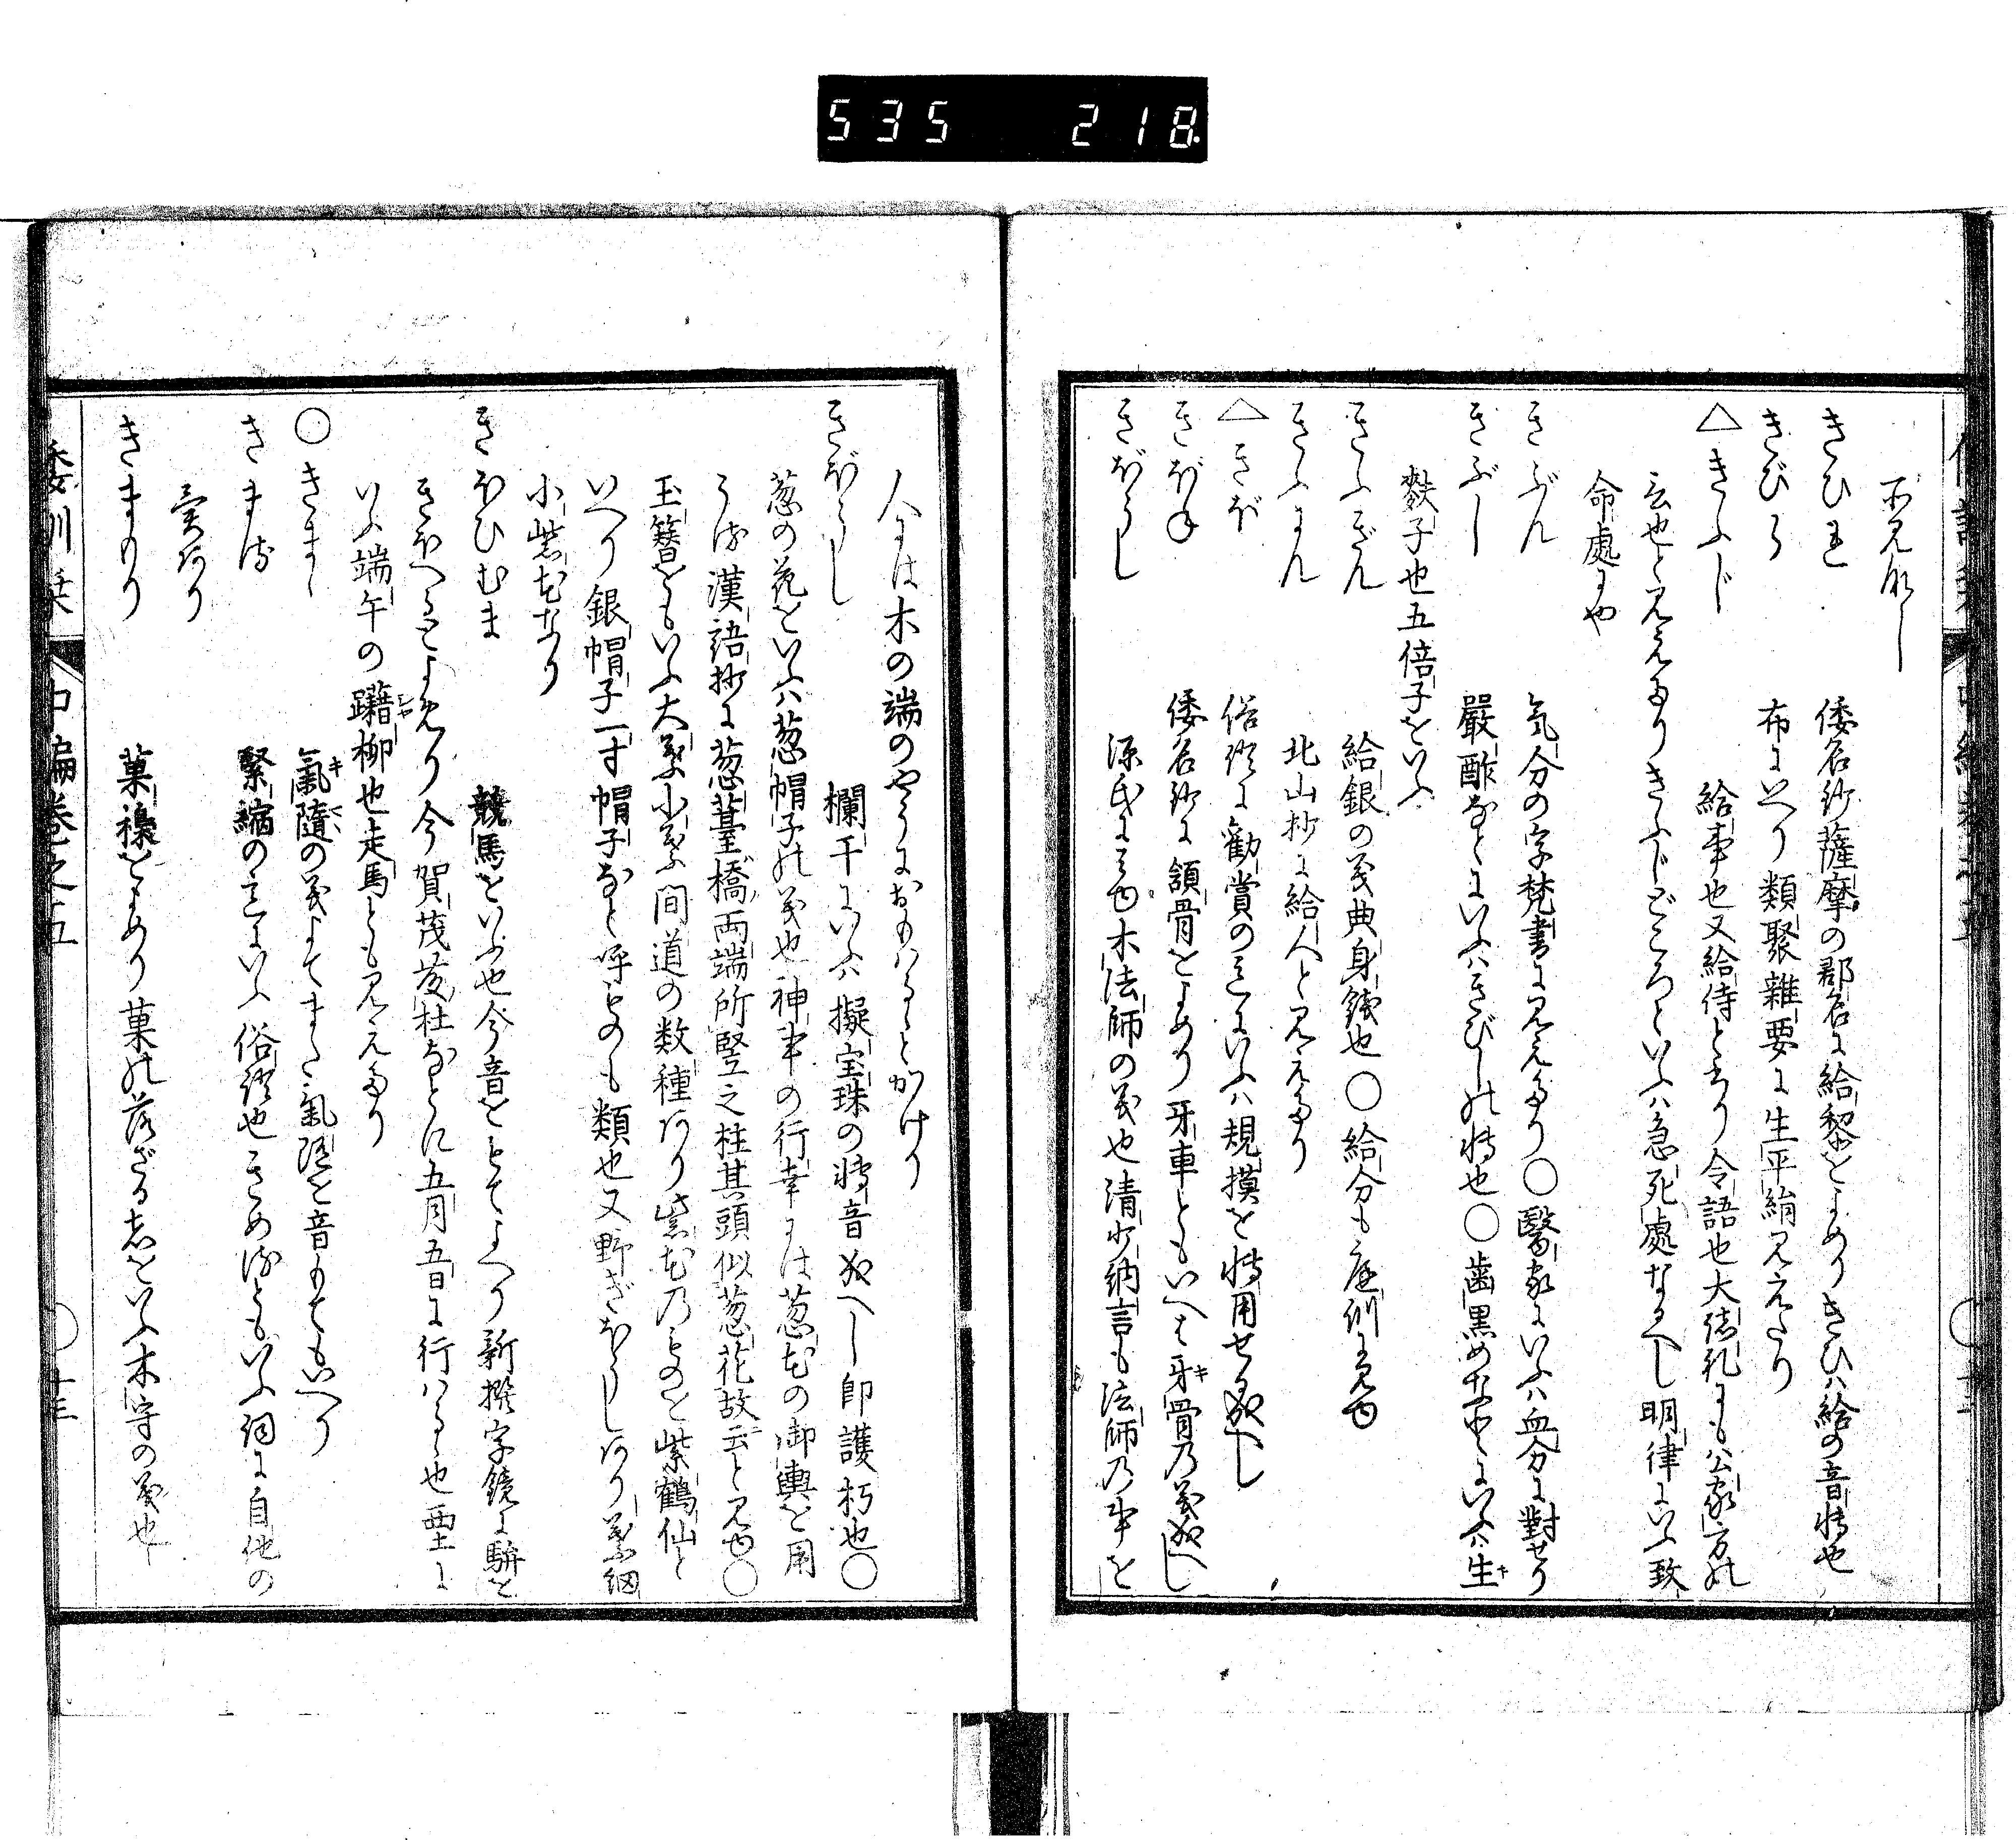 535 218
不見所し
きひれ 倭名鈔薩摩の郡名に給黎をよめりきひハ給の音転也
きびら 布にいへり類聚雑要に生平絹見えたり
△きふじ 給事也又給侍とあり令語也大諸礼にも公家方の
云也と見えたりきふじどころといふハ急死處なるへし明律にいふ致
命處にや
きぶん 気分の字梵書に見えたり○醫家にいふハ血分に對せり
きぶし 嚴酢なとにいふハきびしの転也○歯黒めなとにいふハ生キ
麩子也五倍子をいふ
きふぎん 給銀の義典身錢也○給分も庭訓に見ゆ
きふにん 北山抄に給人と見えたり
△きぼ 俗語に勧賞の事にいふハ規摸を転用せる成へし
きぼね 倭名鈔に頷骨をよめり牙車ともいへは牙キ骨乃義成へし
きぼうし 源氏にみゆ木法師の義也清少納言も法師乃事を
人には木の端のやうにおもハるゝとかけり
きぼうし 欄干にいふハ擬宝珠の転音成へし即護朽也○
葱の花をいふハ葱帽子の義也神事の行幸には葱花の御輿を用
うは漢語抄に葱薹橋両端所竪之柱其頭似葱花故云と見ゆ○
玉簪をもいふ大葉小葉間道の数種あり紫花乃ものを紫鶴仙と
いへり銀帽子一寸帽子なと呼ものも類也又野ぎぼうしあり葉細
小紫花なり
きほひむま 競馬をいふ也今音をもてよへり新撰字鏡に騈を
きほへるとよめり今賀茂藤杜なとに五月五日に行ハるゝ也西土に
いふ端午の躤シヤ柳也走馬とも見えたり
○きまゝ 氣キ隨の義よてまゝ氣随と音もてもいへり
きまる 緊縮の事にいふ俗語也きめるともいふ詞に自他の
異あり
きまもり 菓襐をよめり菓の落ざる者をいふ木守の義也
倭訓栞 中編巻之五 ○ 十三